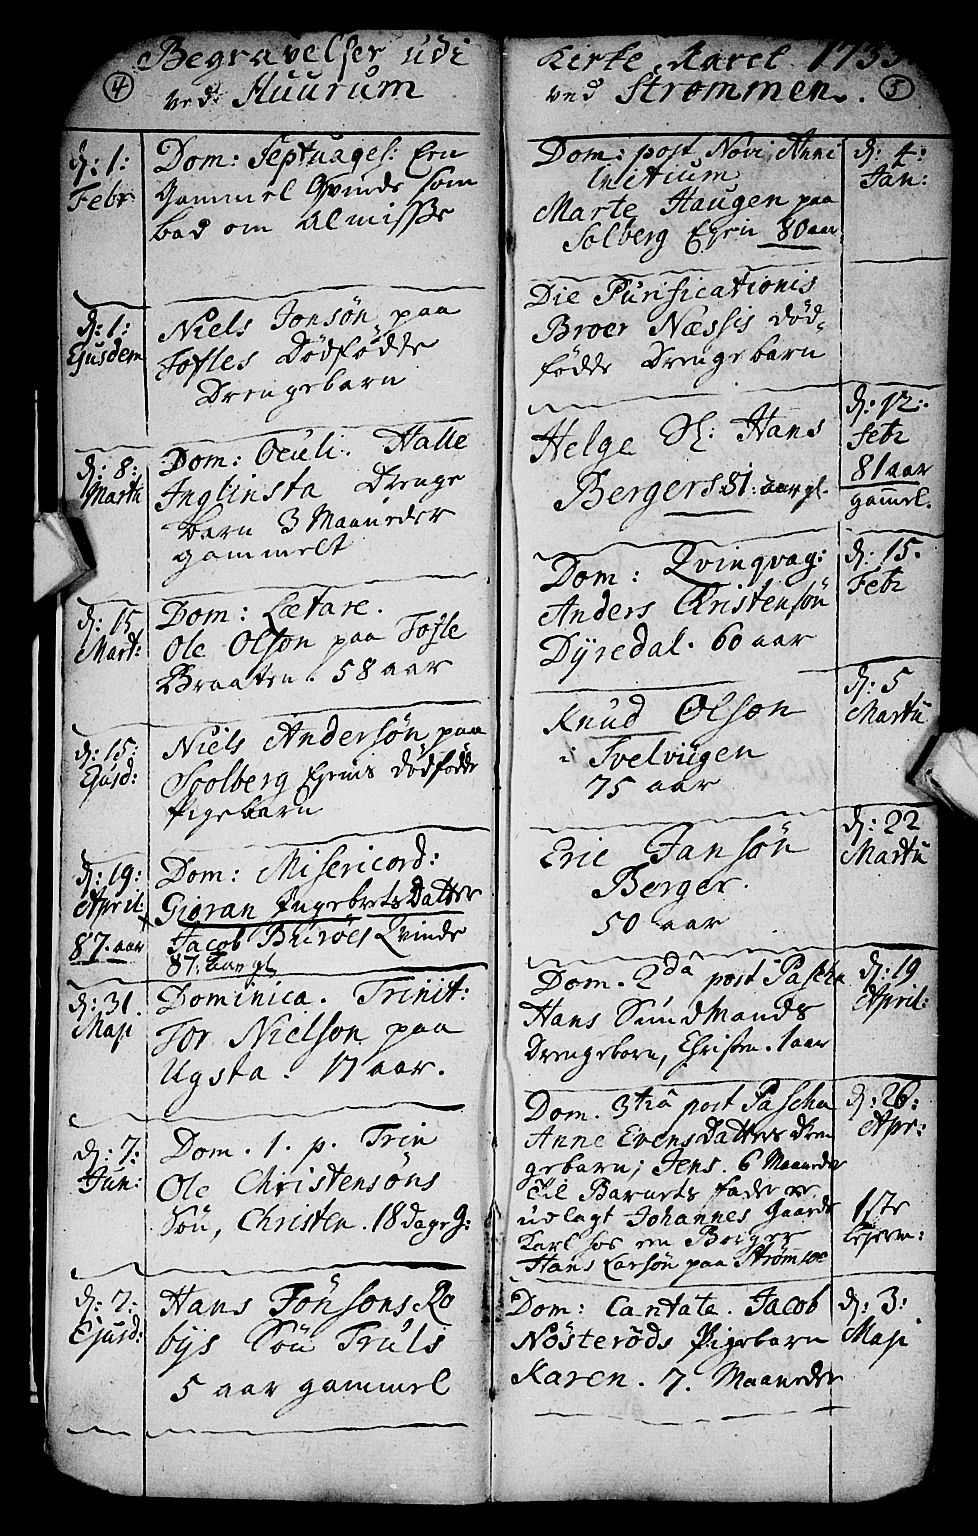 4
Begravelser udi
ved Huurum
d: 1:
Febr
Dom: Septuages: Een
Gammel Qvinde som
bad om Almisse
d: 1:
Ejusdem
Niels Jonsøn paa
Tofles Dødfødde
Drengebarn
d: 8:
Martii
Dom: Oculi. Halle
Inglinsta Drenge
barn 3 Maaneder
gammelt
d: 15
Mart:
Dom: Lætare.
Ole Olson paa Tofle
Braaten. 58 aar
d: 15:
Ejusd:
Niels Andersøn paa
Soolberg Ejens dødfødde
Pigebarn
d: 19:
April:
87. aar
Dom: Misericord:
Giøran Ingebretsdatter
Jacob Qvinde
87: aar gl
d: 31.
Maji
Dominica. Trinit:
Tor Nielson paa
Ugsta. 17 aar.
d: 7:
Jun:
Dom. 1. p. Trin
Ole Christensøns
Søn, Christen. 18 dage g:
d: 7:
Ejusd:
Hans Tønsons Ro
bys Søn Truls
5 aar gammel
Kirke Aaret 1733
5
ved Strømmen.
Dom: post Novi Anni
initium
Marte Haugen paa
Solberg Ejen 80 aar
d: 4:
Jan:
Die Purificationis
Broer Næsses død-
fødde Drengebarn
Helge Sl: Hans
Bergers 81: aar gl.
d: 12:
Febr
81 aar
gamel.
Dom: Qvinqvag:
Anders Christensøn
Dyredal. 60 aar
d: 15.
Febr
Knud Olson
i Svelviigen
75 aar
d: 5
Martii
Eric Jansøn
Berger.
50 aar
d: 22
Martii
Dom. 2da post Pascha
Hans Sundmands
Drengebarn, Christen. 1 aar
d: 19
April:
Dom. 3tia post Pascha
Anne Evensdatters dren
gebarn; Jens. 6 Maaneder
til Barnets fader er
udlagt Johannes Gaards
Karl hos en Borger
Hans Larsøn paa Strømsoe
d: 26:
Apr:
1ste
Lejerm:
Dom: Cantate. Jacob
Nøsterøds Pigebarn
Karen. 7. Maaneder
d: 3:
Maji